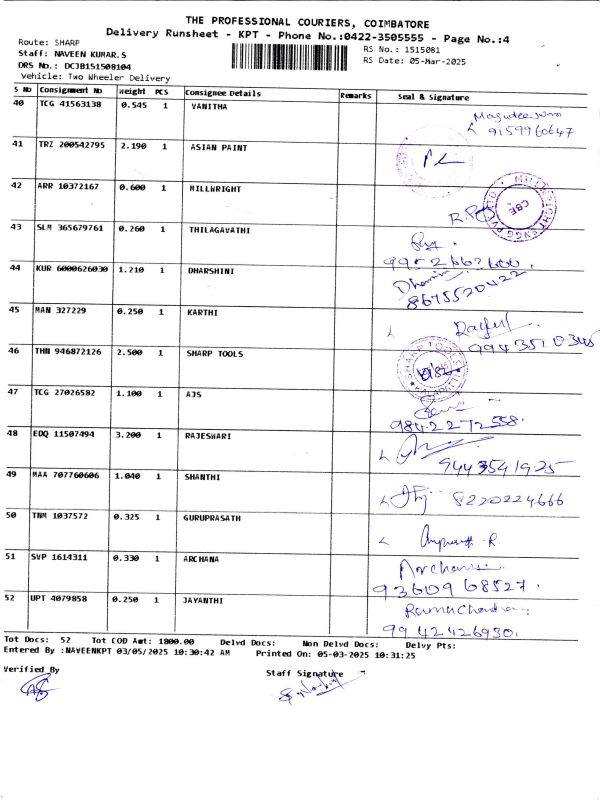 THE PROFESSIONAL COURIERS, COIMBATORE
Delivery Runsheet - KPT - Phone No.:0422-3505555 - Page No.:4
Route: SHARP
Staff: NAVEEN KUMAR.S
DRS No.: DCJB151508104
Vehicle: Two Wheeler Delivery
RS No.: 1515081
RS Date: 05-Mar-2025
S No Consignment No Weight PCS Consignee Details Remarks Seal & Signature
40 TCG 41563138 0.545 1 VANITHA
9159960647
41 TRZ 200542795 2.190 1 ASIAN PAINT
42 ARR 10372167 0.600 1 MILLWRIGHT
MILLWRIGHT ENGG
CBE
43 SLM 365679761 0.260 1 THILAGAVATHI
44 KUR 6000626030 1.210 1 DHARSHINI
8675520422
45 MAN 327229 0.250 1 KARTHI
46 THN 946872126 2.500 1 SHARP TOOLS
SHARP TOOLS
47 TCG 27026582 1.100 1 AJS
9842272558
48 EDQ 11507494 3.200 1 RAJESWARI
9443541925
49 MAA 707760606 1.040 1 SHANTHI
8220224666
50 TNM 1037572 0.325 1 GURUPRASATH
51 SVP 1614311 0.330 1 ARCHANA
Archana
9360968527.
52 UPT 4079858 0.250 1 JAYANTHI
9942426930.
Tot Docs: 52 Tot COD Amt: 1800.00 Delvd Docs: Non Delvd Docs: Delvy Pts:
Entered By :NAVEENKPT 03/05/2025 10:30:42 AM Printed On: 05-03-2025 10:31:25
Verified By
Staff Signature